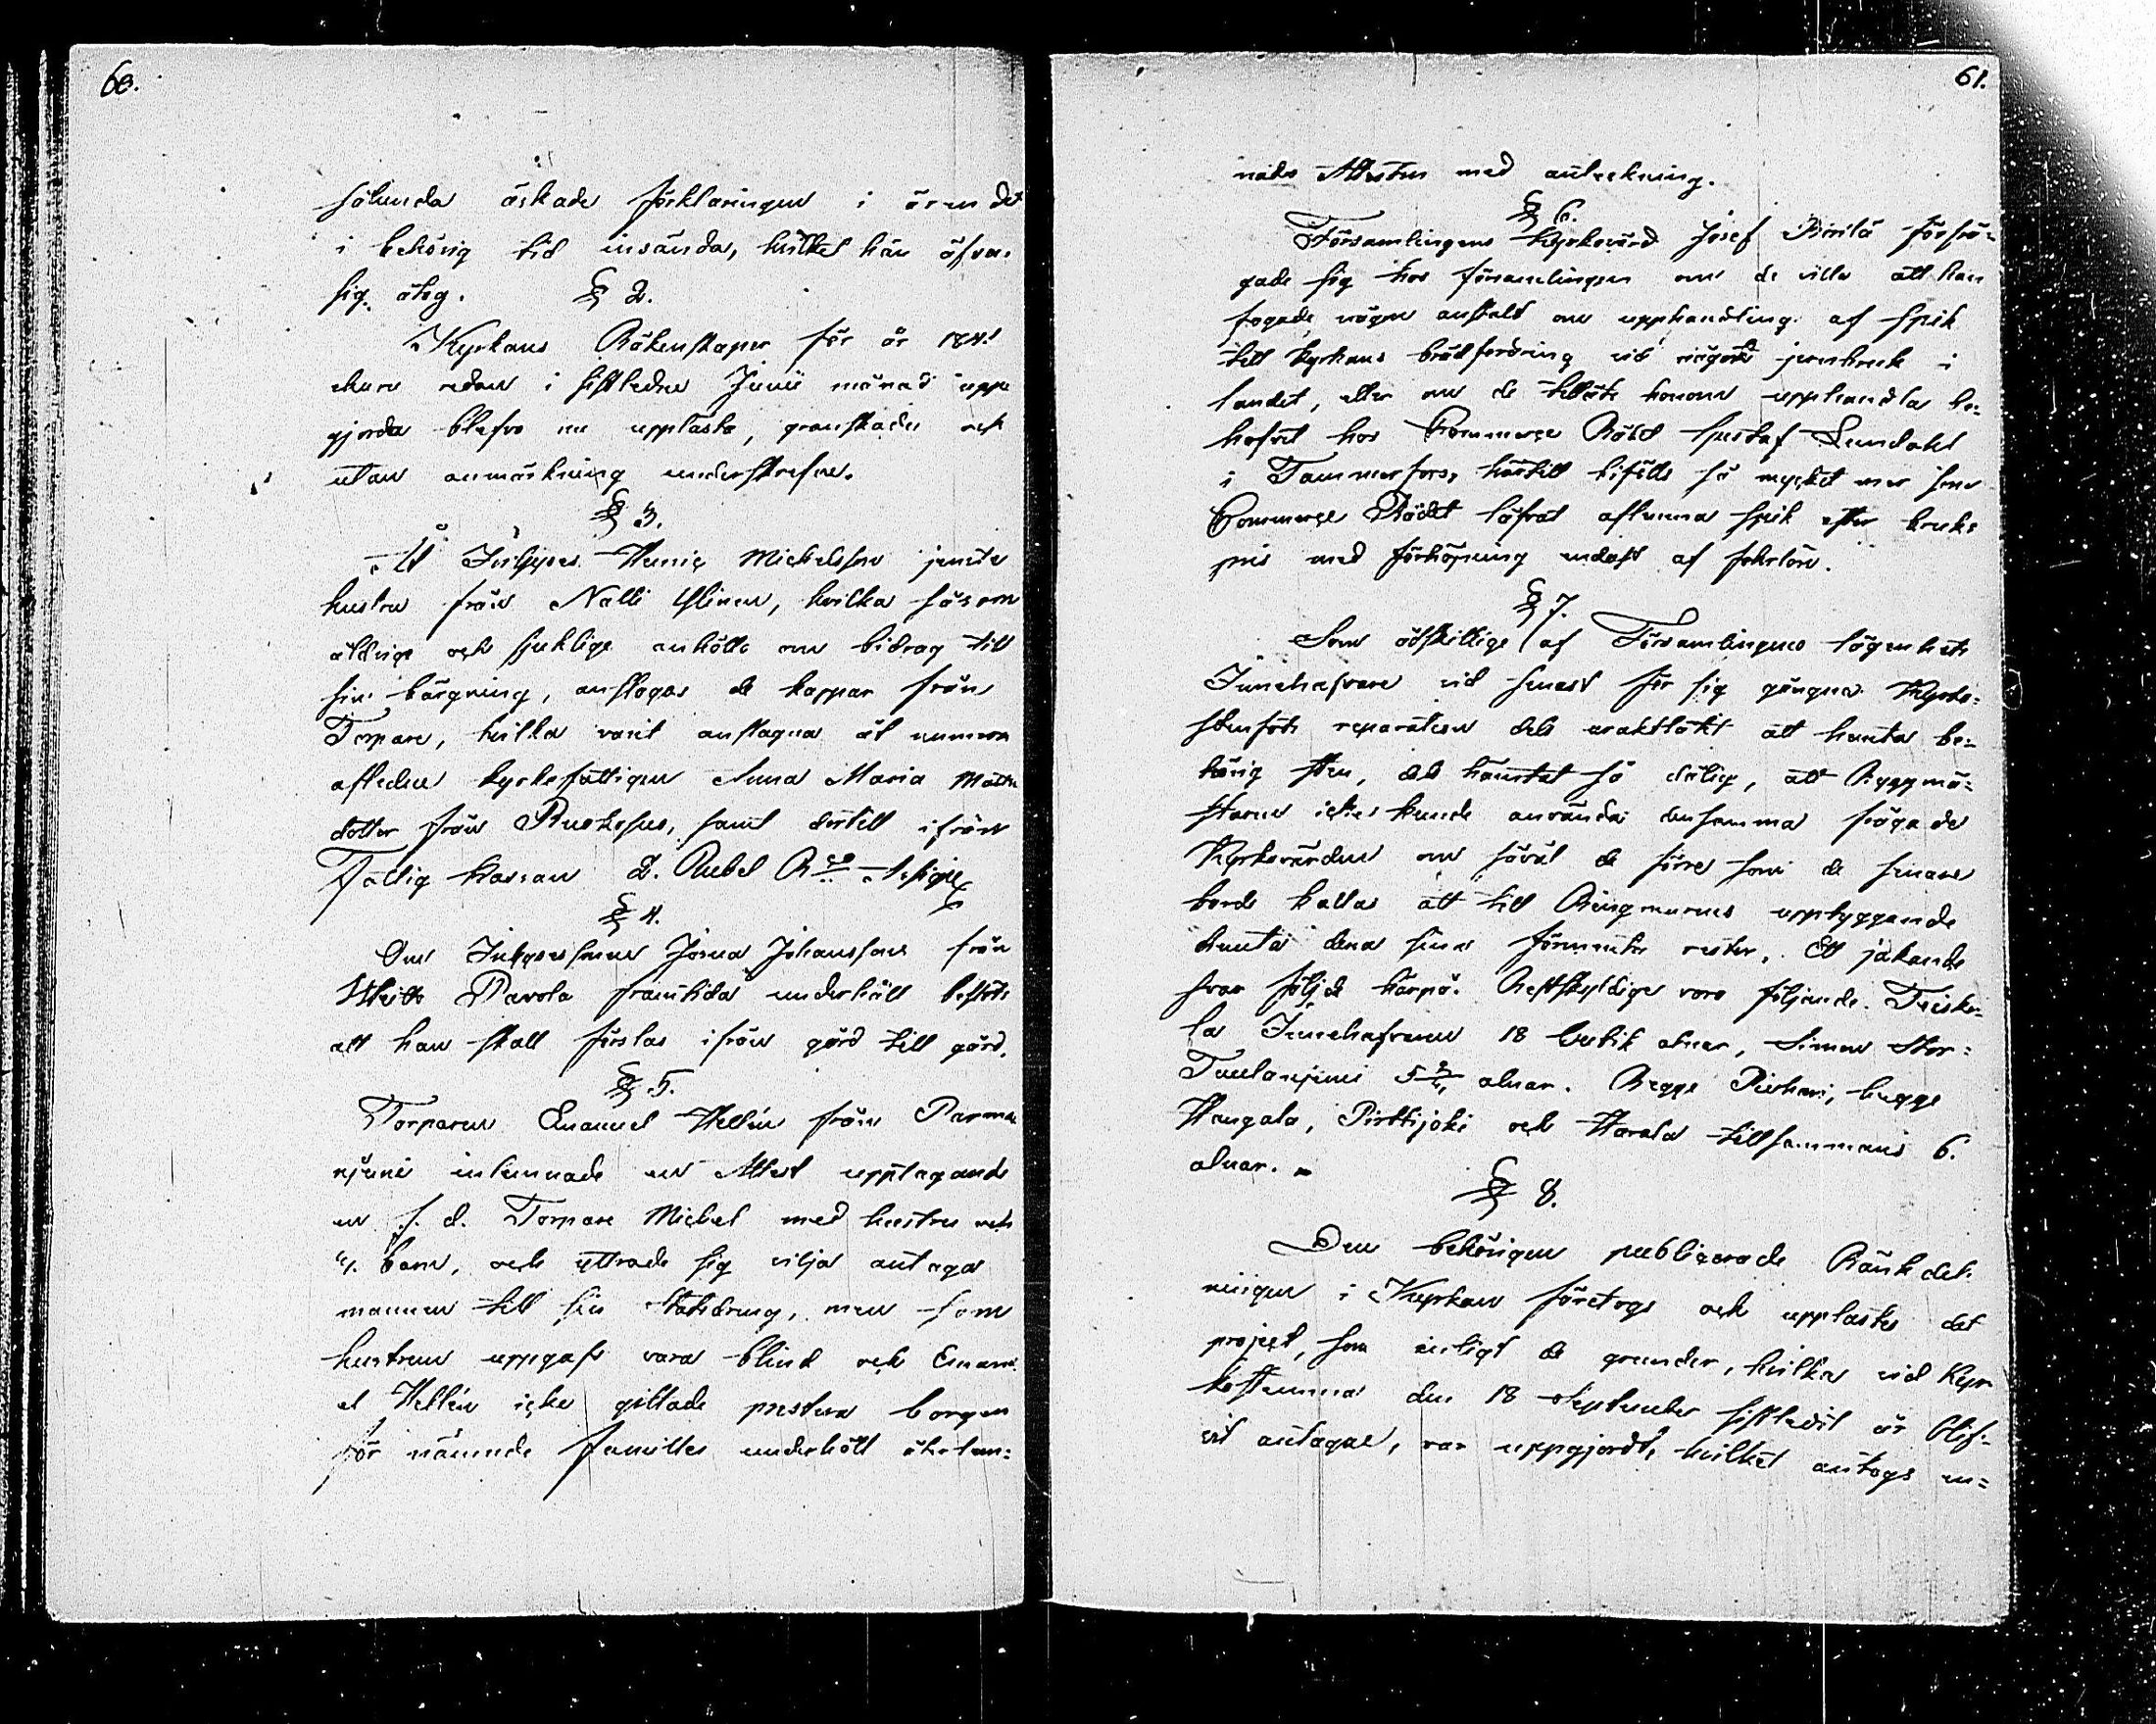 60.
sålunda äskade förklaringen i ärendet
i behörig tid insändas, hvilket han äfven
sig åtog. § 2.
Kyrkans Räkenskaper för år 1841
redan i sistledne Junii månad upp
gjorda blefvo nu upplästa, granskade och
utan anmärkning underskrefne.
§ 3.
Åt Inhyses Henric Michelsson jemte
hustru från Nalli Ylinen, hvilka såsom
åldrige och sjuklige anhöllo om bidrag till
sin bärgning, anslogos de kappar från
Torpare, hvilka varit anslagna åt numera
afledne kyrkofattigen Anna Maria Matts
dotter från samt dertill ifrån
Fattig Kassan 2. Rubel
§ 4.
Om Inhysessonen Josua Johansson från
Pavola framtida underhåll beslöts
att han skall förslas ifrån gård till gård.
§ 5.
Torparen Emanuel Hellén från
inlemnade en Attest upptagande
en f. d. Torpare Michel med hustru och
4. barn, och yttrade sig vilja antaga
mannen till sin Statsdräng, men som
hustrun uppgafs vara blind och Emanu
el Hellén icke gillade prestera borgen
för nämnde familles underhåll återlem=
61.
nades Attesten med anteckning.
§ 6.
Församlingens Kyrkovärd Josef förfrå=
gade sig hos församlingen om de ville att han
fogade någon anstalt om upphandling af spik
till Kyrkans brädfordring vid något jernbruk i
landet, eller om de tilläte honom upphandla be=
hofvet hos Commerce Rådet Gustaf Sundahl
i Tammerfors, härtill bifölls så mycket mer som
Commerce Rådet låfvat aflemna spik efter bruks
pris med förhöjning endast af forlön.
§ 7.
Som åtskillige af Församlingens lägenhets
Innehafvare vid senast för sig gångna Kyrko=
stenfots reparation dels uraktlåtit att hemta be=
hörig sten, dels hämtat så dålig, att Byggmä=
starne icke kunde använda densamma frågade
Kyrkovärden om såväl de förre som de senare
borde kallas att till Ringmurens uppbyggande
hemta dena sina förmenta rester. Ett jakande
svar följde härpå. Restskyldige voro följande.
la Innehafvaren 18 Cubik alnar, Simon Stor=
5 3/4 alnar. Begge begge
Hengala, Pirttijoki och Harala tillsammans 6.
alnar.
§ 8.
Den behörigen publicerade Bänkdel
ningen i Kyrkan företogs och upplästes det
project, som enligt de grunder, hvilka vid Kyr
kostämma den 18 September sistledit år blif=
vit antagne, var uppgjordt, hvilket antogs en=